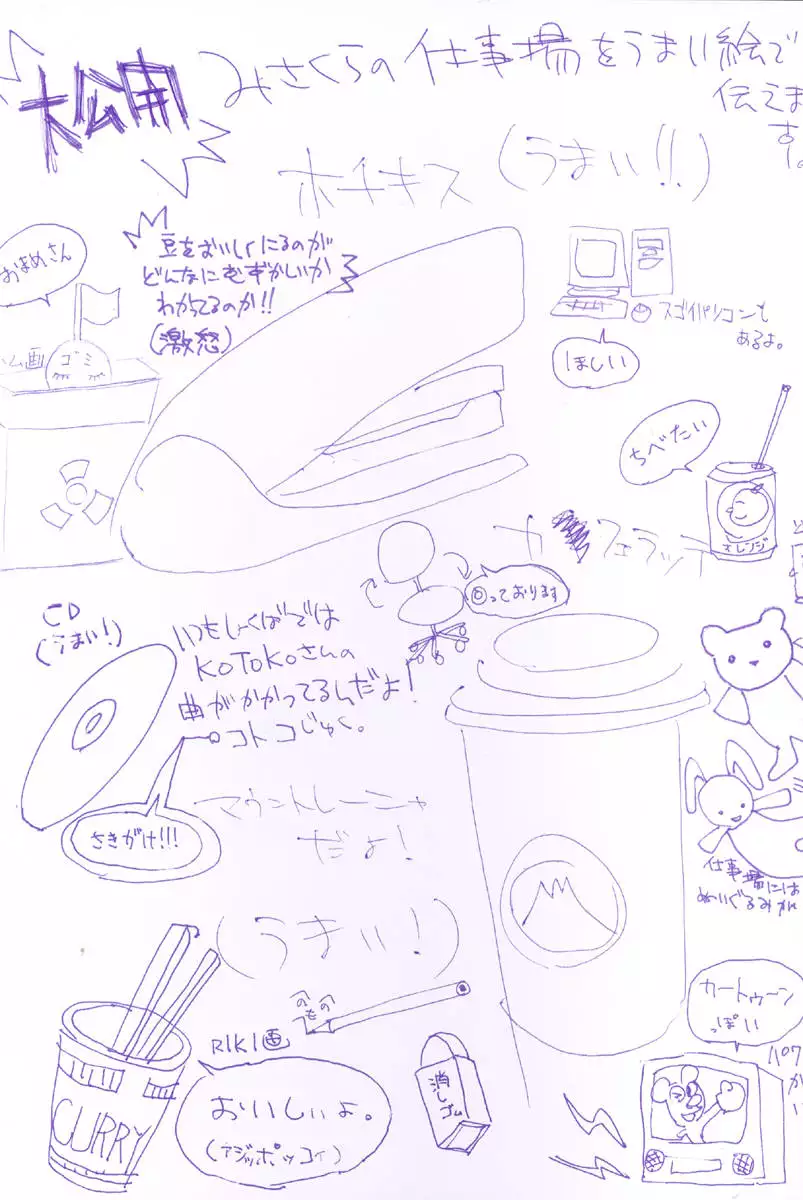 大公開
みさくらの仕事場をうまい絵で
伝えま
す。
ホチキス(うまい!!)
おまめさん
豆をおいしくにるのが
どんなにむずかしいか
わかってるのか!!
(激怒)
ゴミ
スゴイパソコンも
あるよ。
ほしい
ちべたい
オレンジ
カフェラッテ
◎っております
CD
(うまい!)
いつもしょくばでは
KOTOKOさんの
曲がかかってるんだよ!
コトコじゅく。
さきがけ!!!
マウントレーニャ
だよ!
(うまい!)
仕事場には
ぬいぐるみが
カートゥーン
っぽい
へのもへ
RIKI画
消しゴム
おいしいよ。
(アジッポッコイ)
CURRY